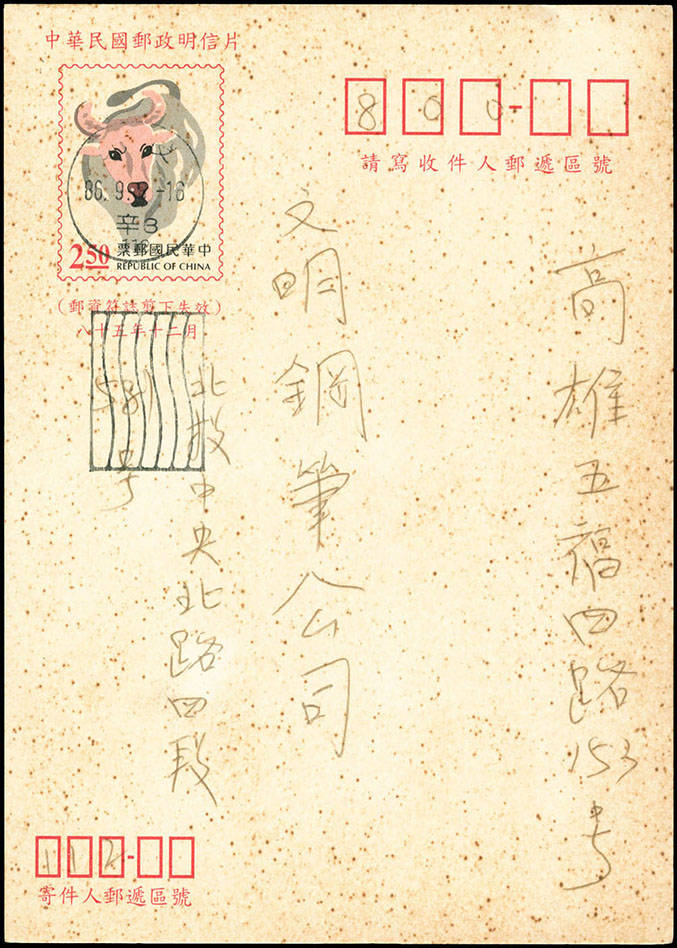 中華民國郵政明信片
800-
請寫收件人郵遞區號
86.9.
-16
辛3
2.50
中華民國郵票
REPUBLIC OF CHINA
（郵資符誌剪下失效）
八十五年十二月
高雄五福四路153号
文明鋼筆公司
北投中央北路四段
581号
112-
寄件人郵遞區號